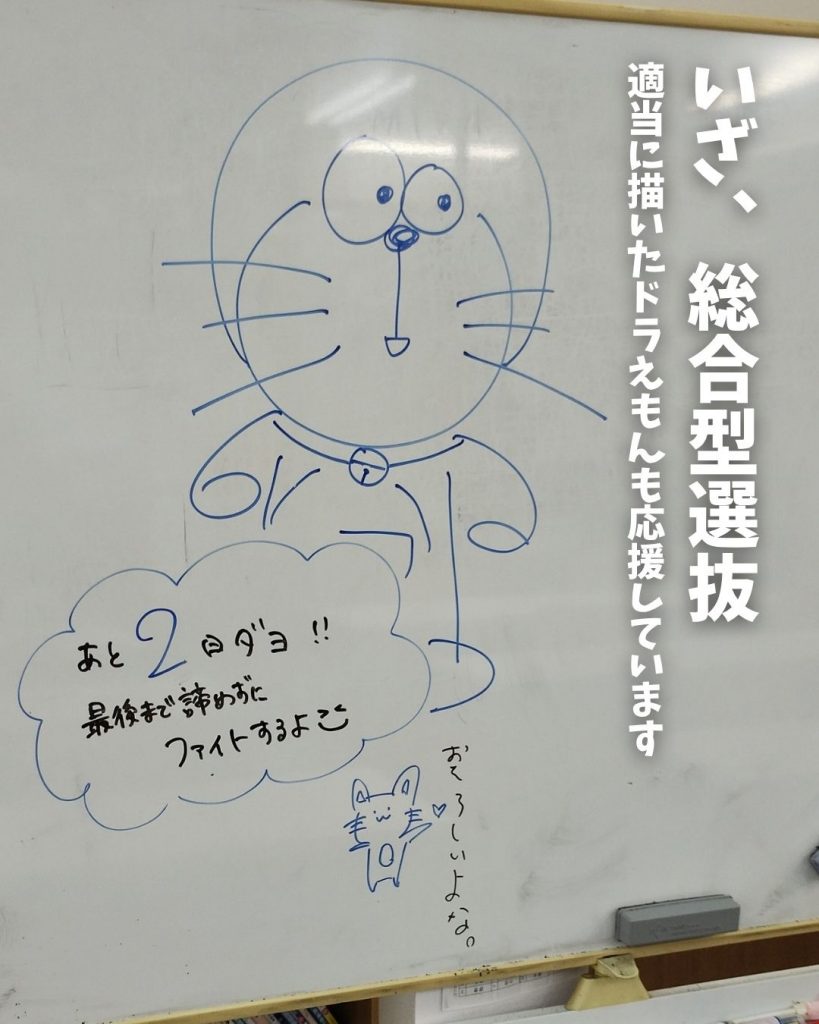 いざ、総合型選抜
適当に描いたドラえもんも応援しています
あと2日ダヨ!!
最後まで諦めずに
ファイトするよ
おそろしいよな。